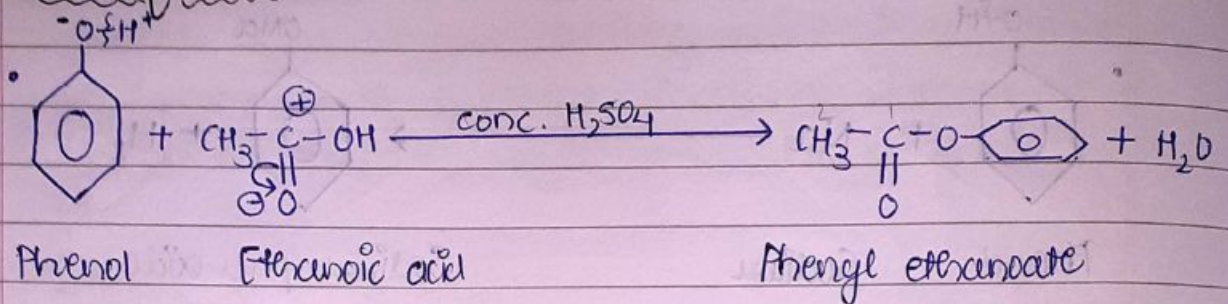 ⁻O⸾H⁺
+ CH₃-C-OH conc. H₂SO₄ CH₃-C-O- + H₂O
⊕
⊖ O O
Phenol Ethanoic acid Phenyl ethanoate